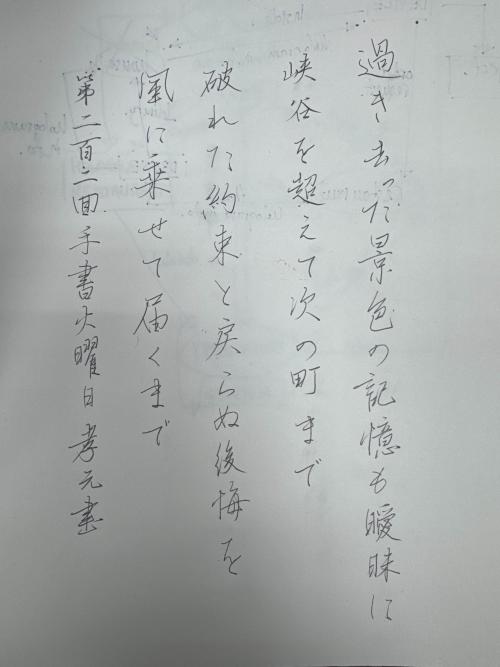 過き去った景色の記憶も曖昧に
峡谷を超えて次の町まで
破れた約束と戻らぬ後悔を
風に乗せて届くまで
第二百二回手書火曜日 孝元書